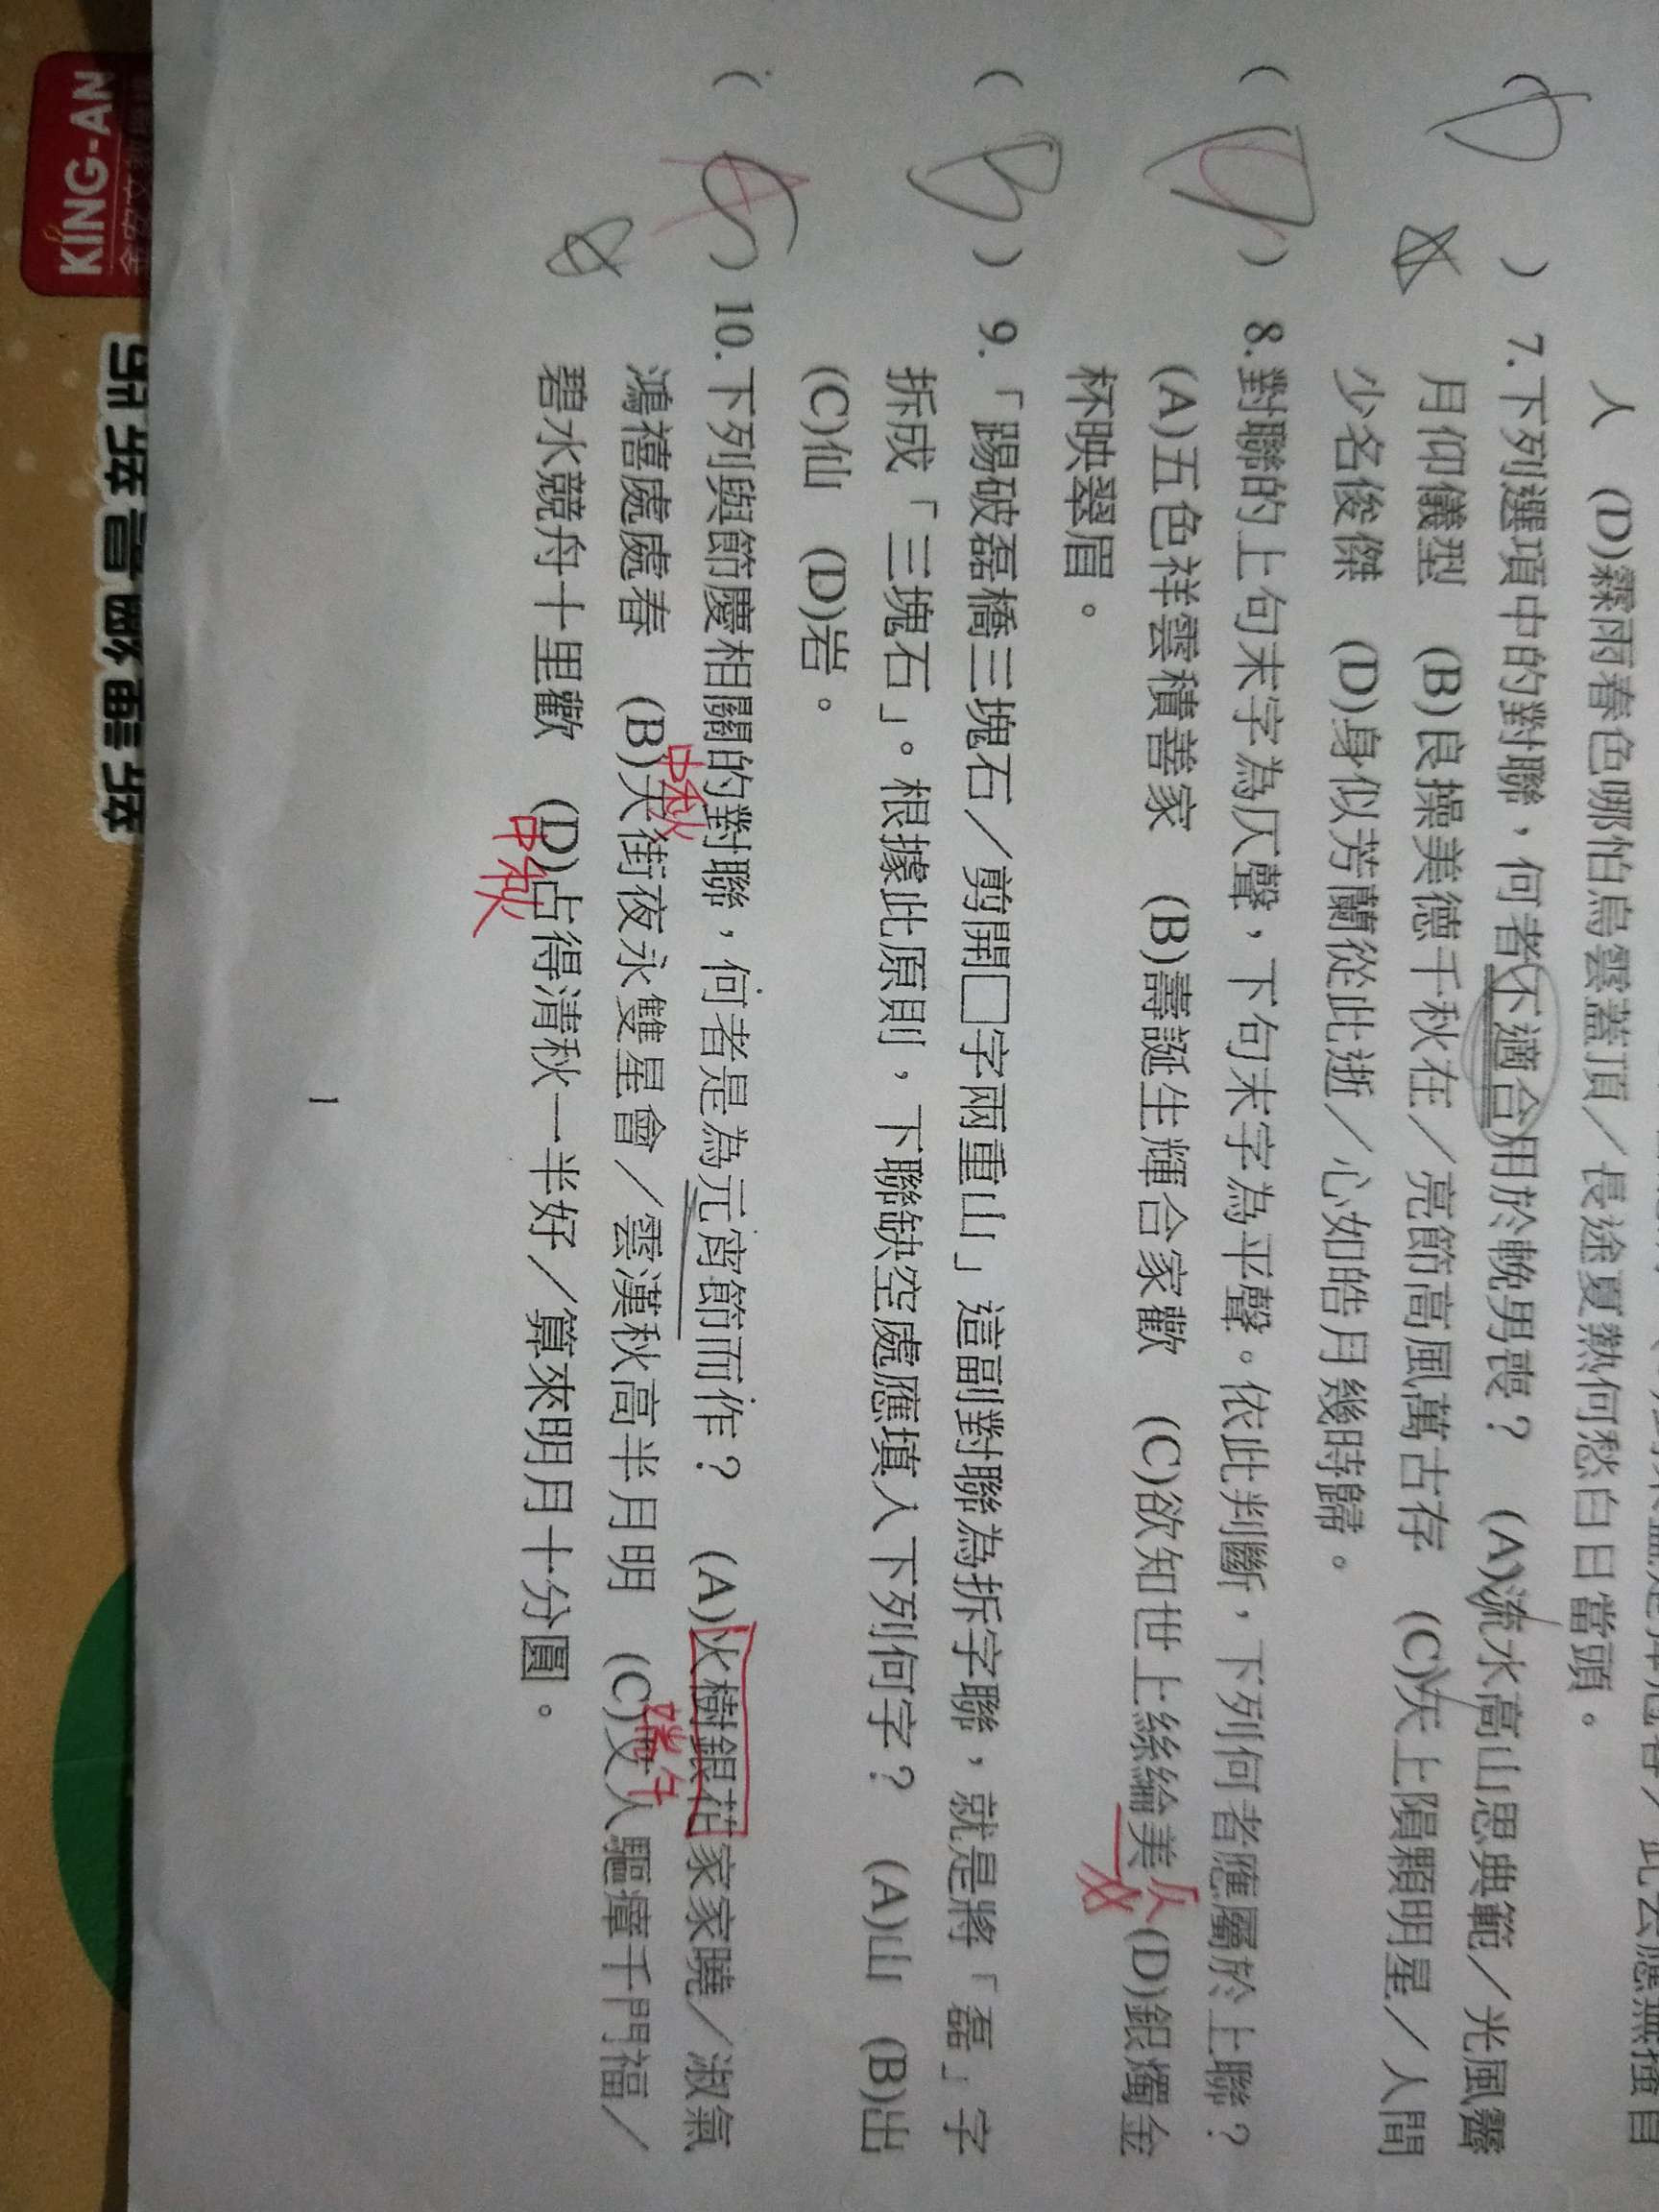 人　(D)霖雨春色哪怕烏雲蓋頂／長途夏熱何愁白日當頭。
(D) 7.下列選項中的對聯，何者不適合用於輓男喪？　(A)流水高山思典範／光風霽
月仰儀型　(B)良操美德千秋在／亮節高風萬古存　(C)天上隕顆明星／人間
少名俊傑　(D)身似芳蘭從此逝／心如皓月幾時歸。
( ) 8.對聯的上句末字為仄聲，下句末字為平聲。依此判斷，下列何者應屬於上聯？
(A)五色祥雲積善家　(B)壽誕生輝合家歡　(C)欲知世上絲綸美　(D)銀燭金
仄
杯映翠眉。
(B) 9.「踢破磊橋三塊石／剪開□字兩重山」這副對聯為拆字聯，就是將「磊」字
拆成「三塊石」。根據此原則，下聯缺空處應填入下列何字？　(A)山　(B)出
(C)仙　(D)岩。
(A) 10.下列與節慶相關的對聯，何者是為元宵節而作？　(A)火樹銀花家家曉／淑氣
中秋
鴻禧處處春　(B)天街夜永雙星會／雲漢秋高半月明　(C)艾人驅瘴千門福／
端午
碧水競舟十里歡　(D)占得清秋一半好／算來明月十分圓。
中秋
1
KING-AN